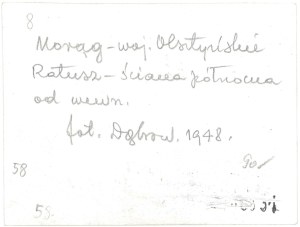 8
Morąg - woj. Olsztyńskie
Ratusz - ściana północna
od wewn.
fot. Dąbrow. 1948.
58
58.